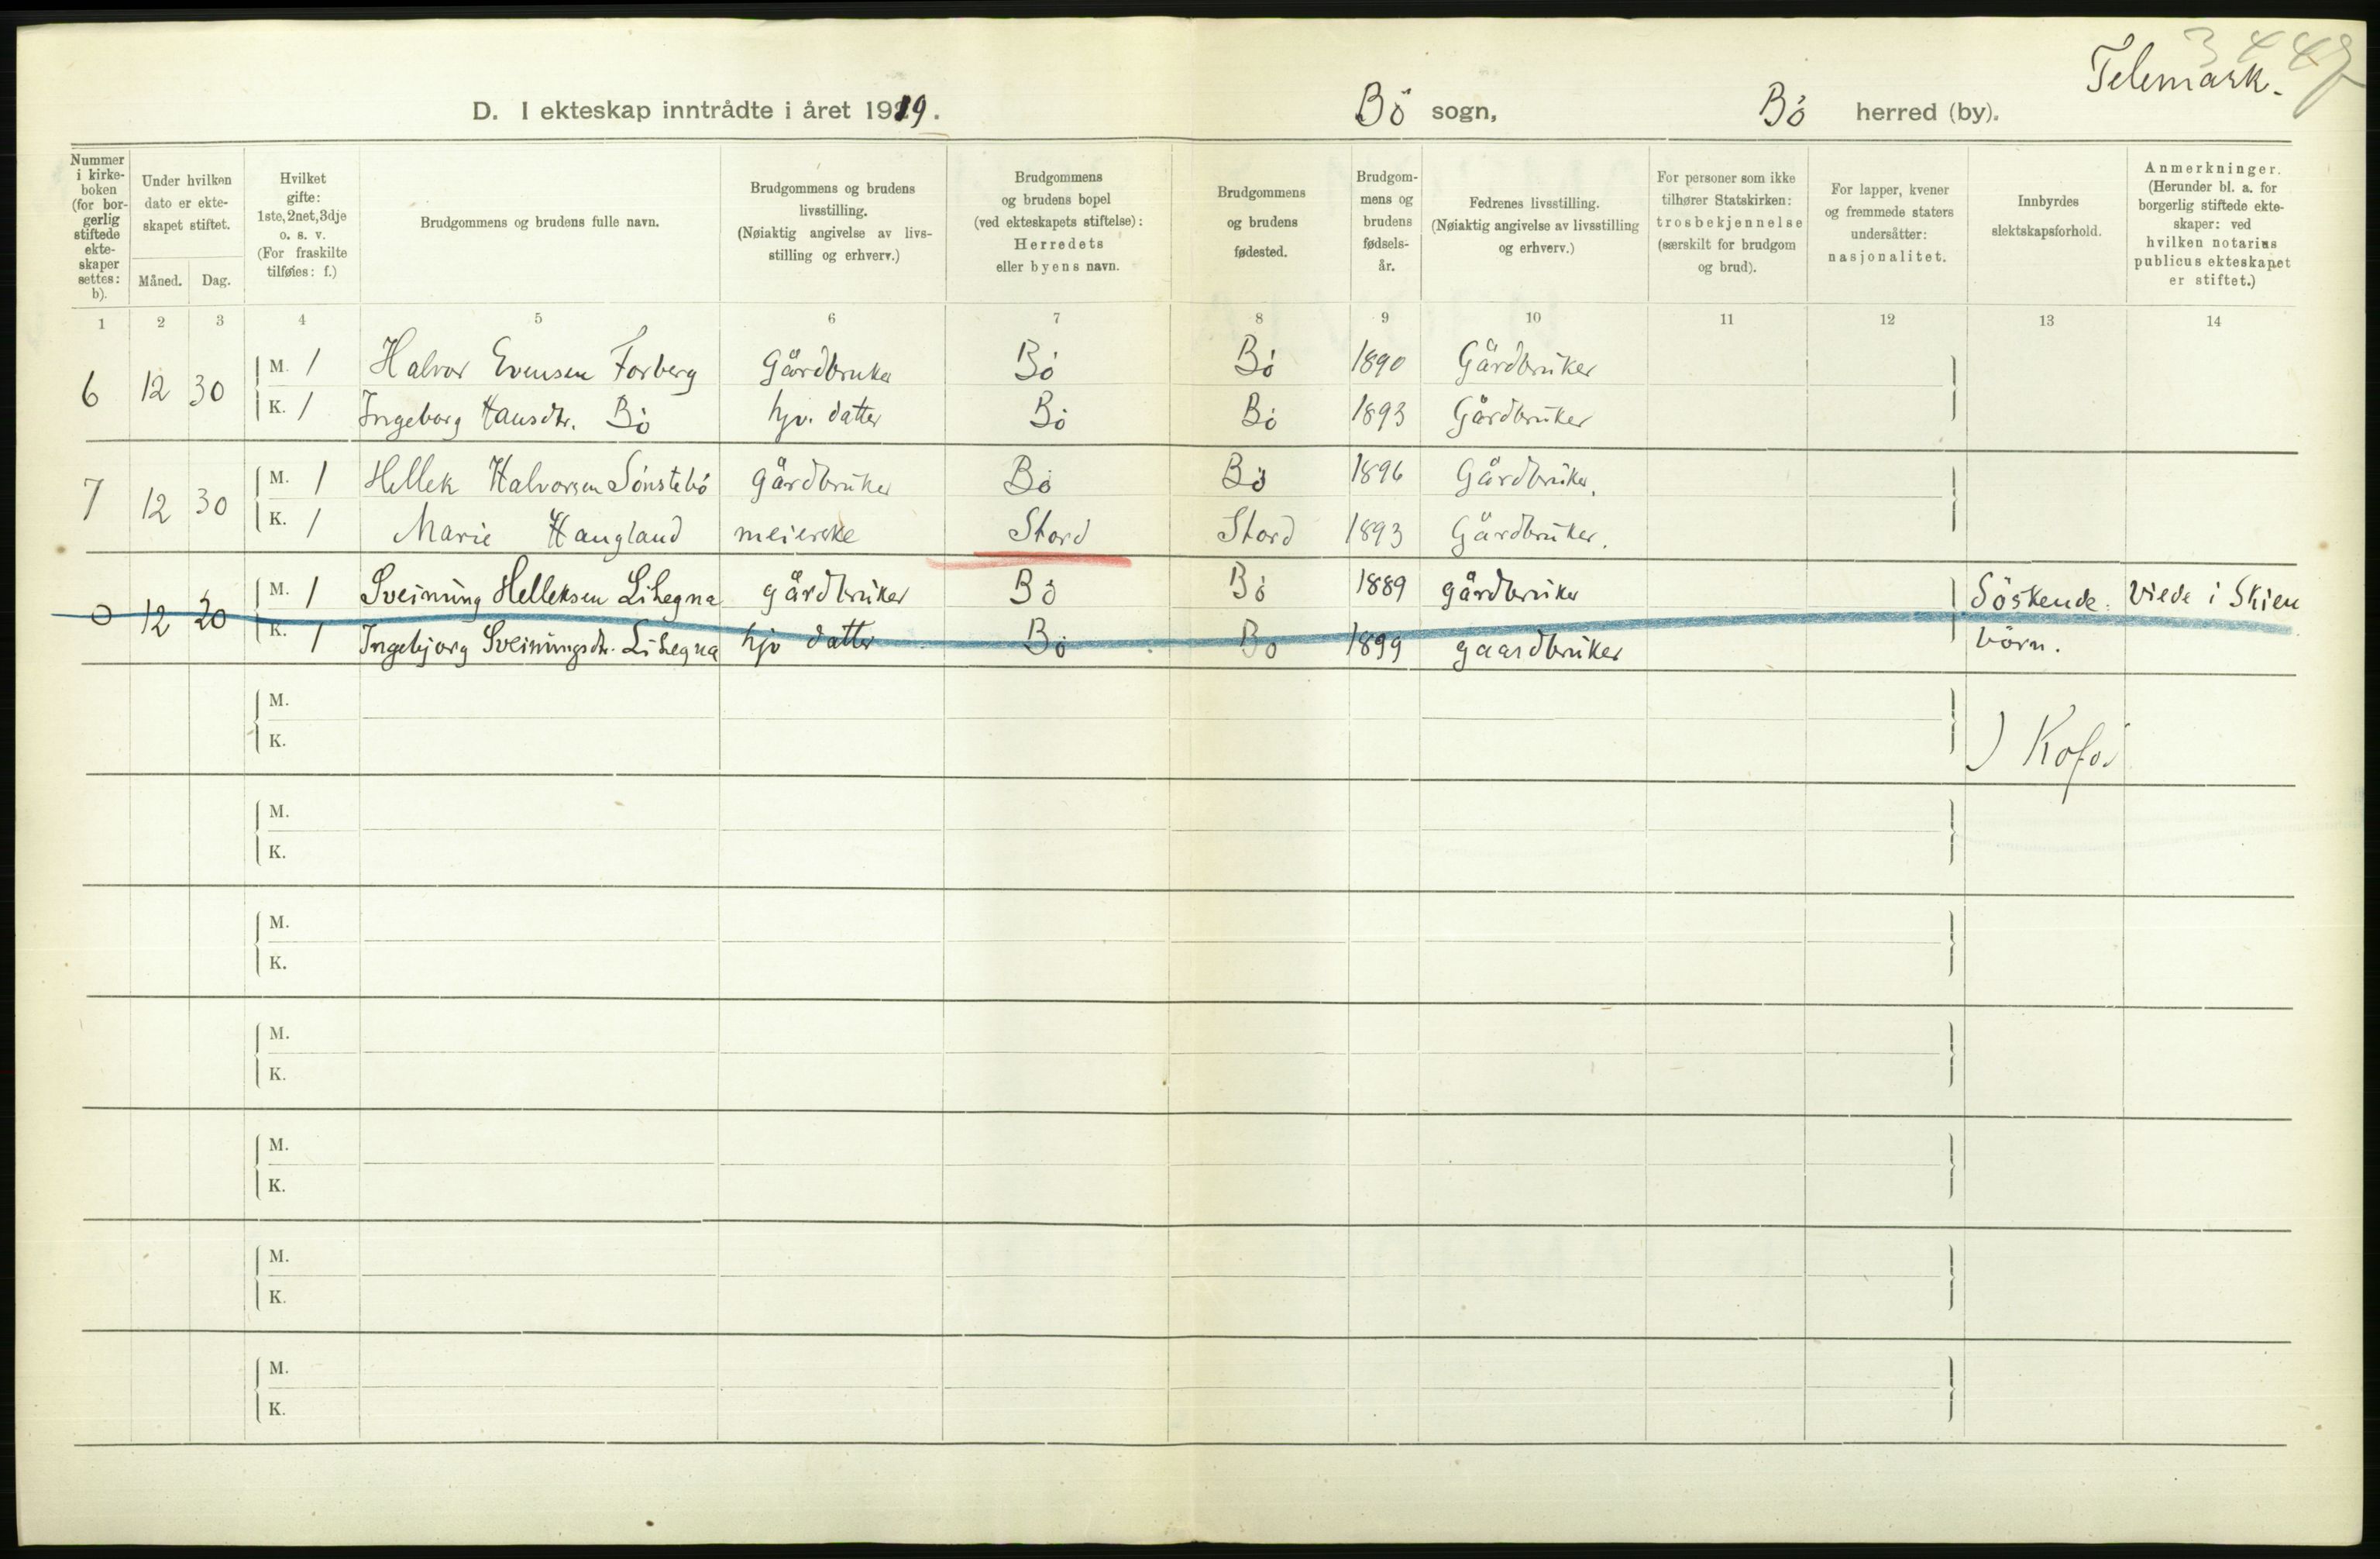 3447
Telemark.
D. I ekteskap inntrådte i året 1919. Bö sogn, Bö herred (by).
Nummer i kirkeboken (for borgerlig stiftede ekteskaper settes: b).
Under hvilken dato er ekteskapet stiftet.
Måned. Dag.
Hvilket gifte: 1ste, 2net, 3dje o. s. v. (For fraskilte tilføies: f.)
Brudgommens og brudens fulle navn.
Brudgommens og brudens livsstilling. (Nøiaktig angivelse av livsstilling og erhverv.)
Brudgommens og brudens bopel (ved ekteskapets stiftelse): Herredets eller byens navn.
Brudgommens og brudens fødested.
Brudgommens og brudens fødselsår.
Fedrenes livsstilling. (Nøiaktig angivelse av livsstilling og erhverv.)
For personer som ikke tilhører Statskirken: trosbekjennelse (særskilt for brudgom og brud).
For lapper, kvener og fremmede staters undersåtter: nasjonalitet.
Innbyrdes slektskapsforhold.
Anmerkninger. (Herunder bl. a. for borgerlig stiftede ekteskaper: ved hvilken notarius publicus ekteskapet er stiftet.)
1 2 3 4 5 6 7 8 9 10 11 12 13 14
6 12 30 M. 1 Halvor Evensen Forberg Gårdbruker Bö Bö 1890 Gårdbruker
K. 1 Ingeborg Hansdtr. Bö hjv. datter Bö Bö 1893 Gårdbruker
7 12 30 M. 1 Hellek Halvorsen Sönstebö gårdbruker Bö Bö 1896 Gårdbruker.
K. 1 Marie Haugland meierske Stord Stord 1893 Gårdbruker.
0 12 20 M. 1 Sveinung Helleksen Lihegna gårdbruker Bö Bö 1889 gårdbruker Söskende- Viede i Skien
K. 1 Ingebjorg Sveinungsdtr. Lihegna hjv datter Bö Bö 1899 gaardbruker börn.
M.
K.
M.
K.
M.
K.
M.
K.
M.
K.
M.
K.
M.
K.